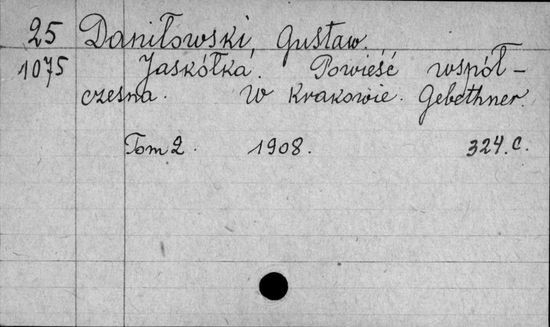 25 Daniłowski, Gustaw.
1075 Jaskółka. Powieść współ-
czesna. W Krakowie. Gebethner.
Tom 2. 1908. 324.c.